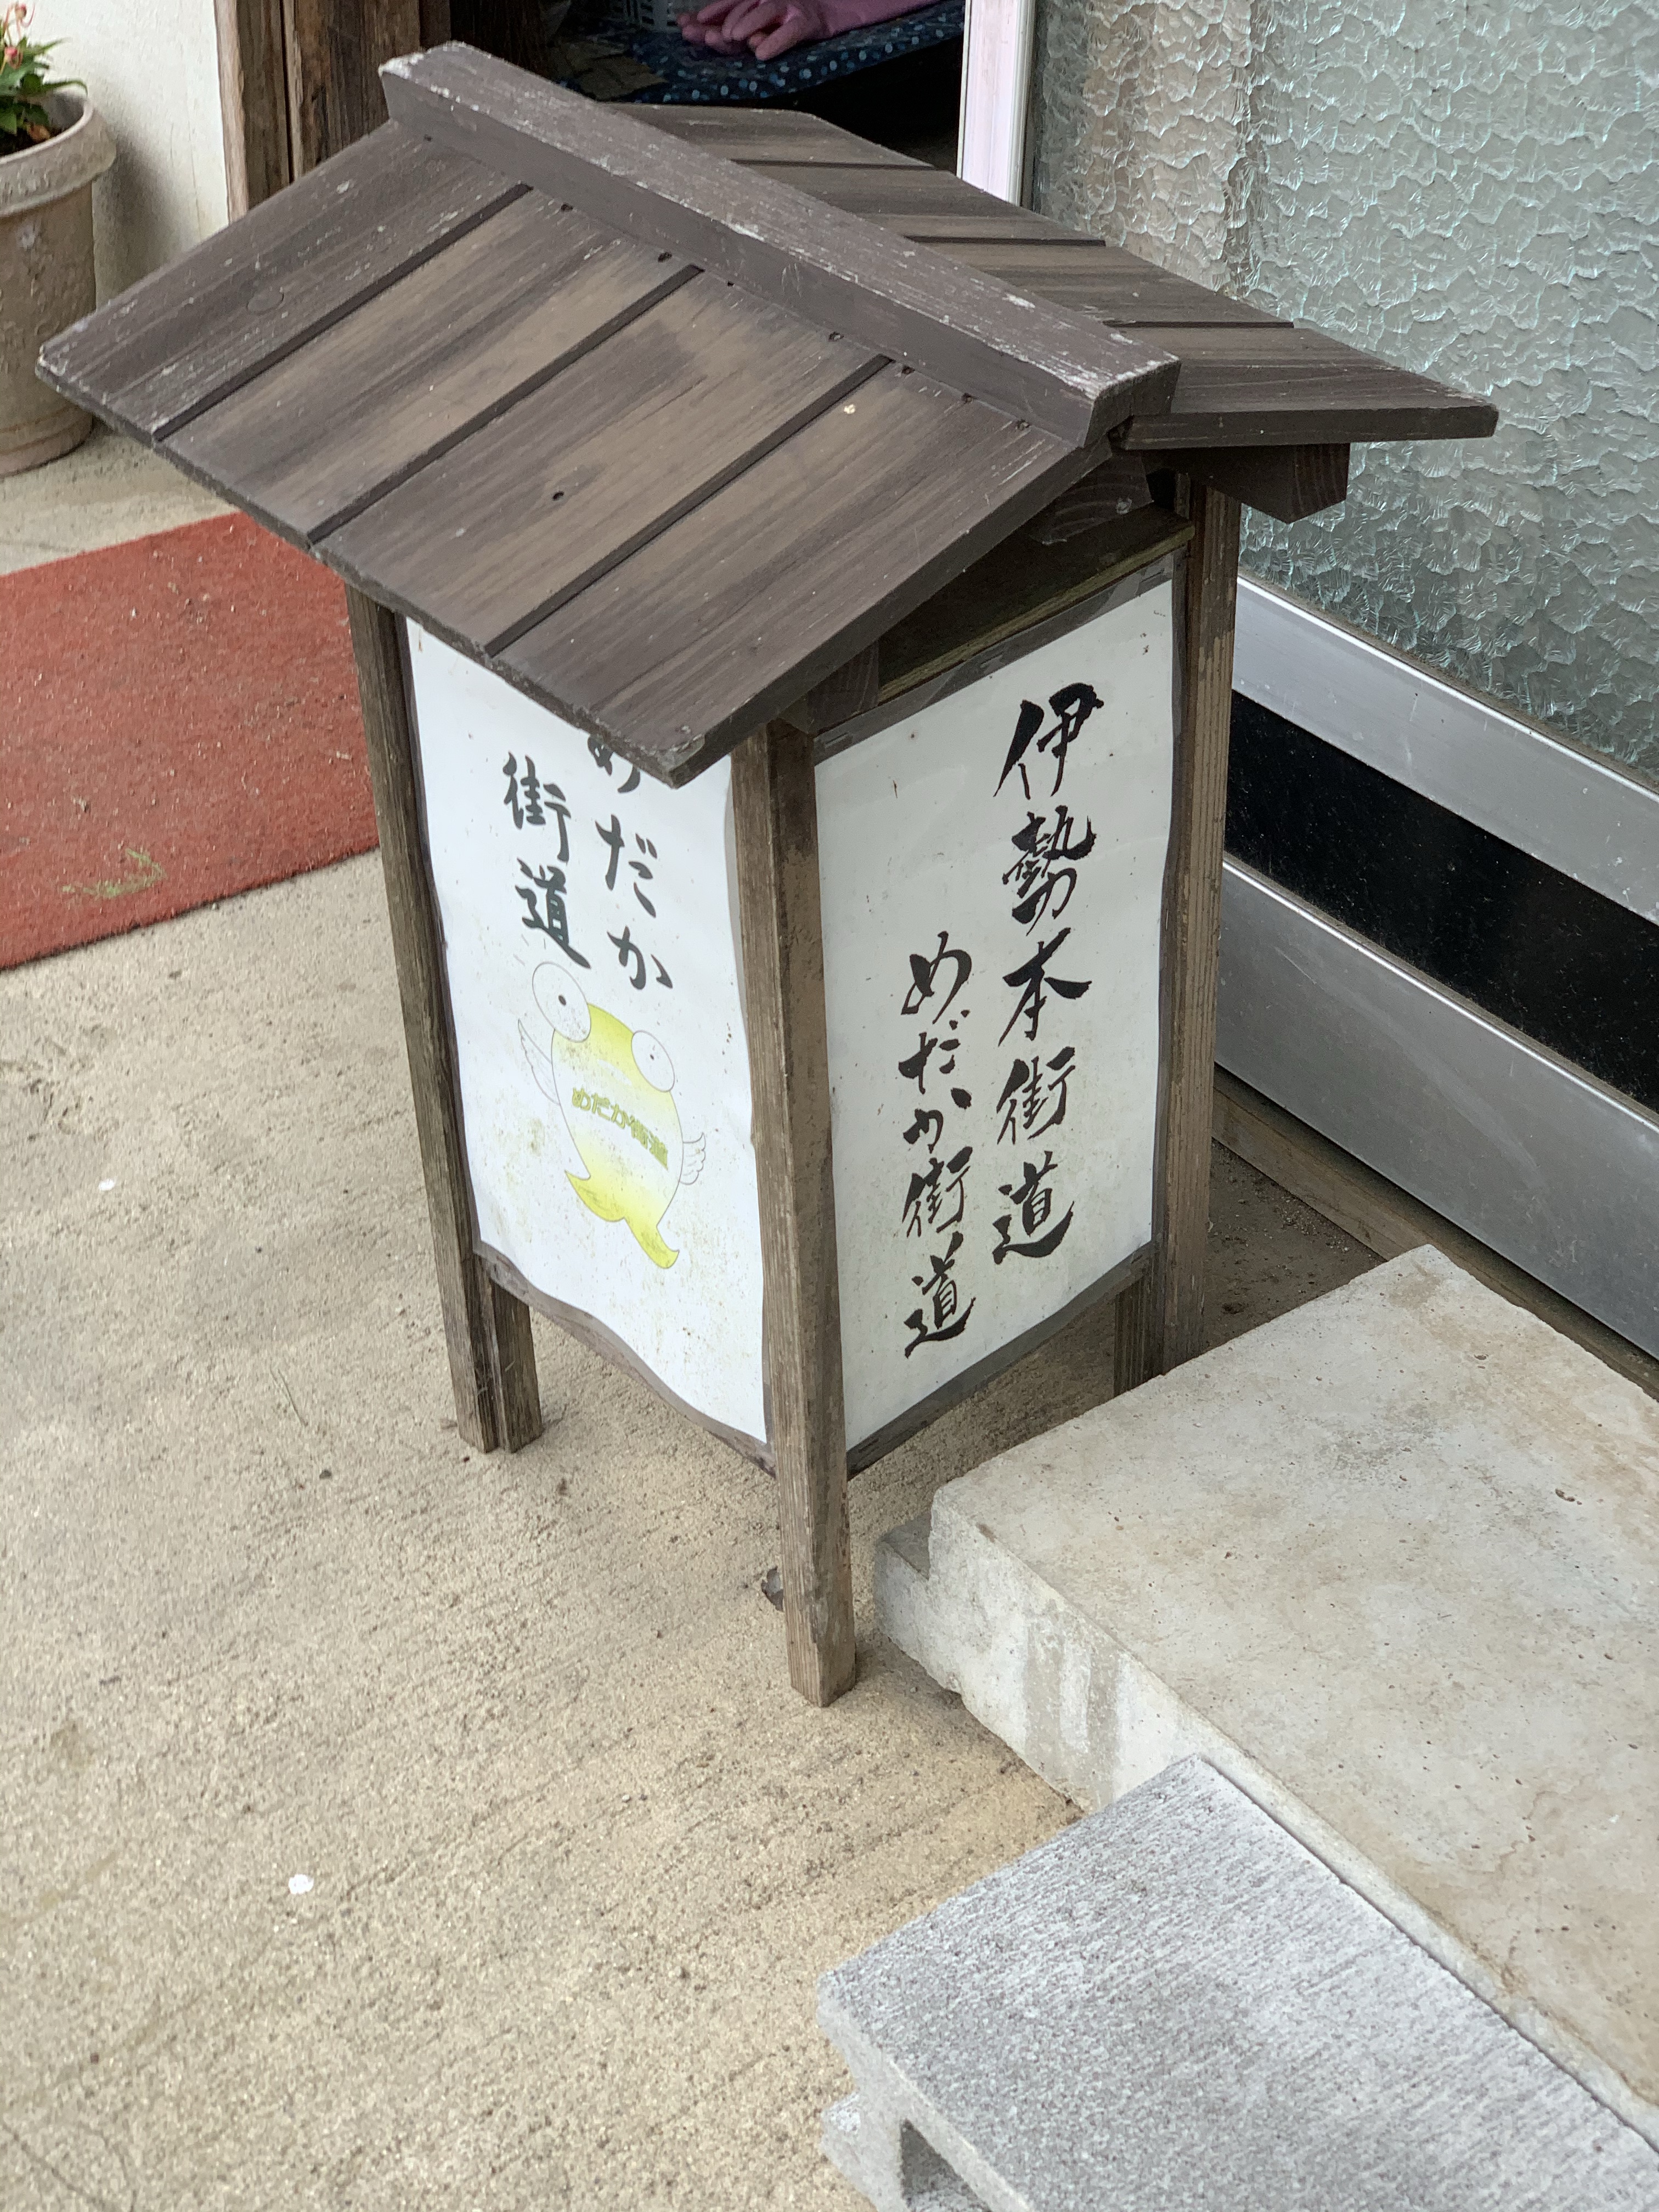 めだか
街道
めだか街道
伊勢本街道
めだか街道